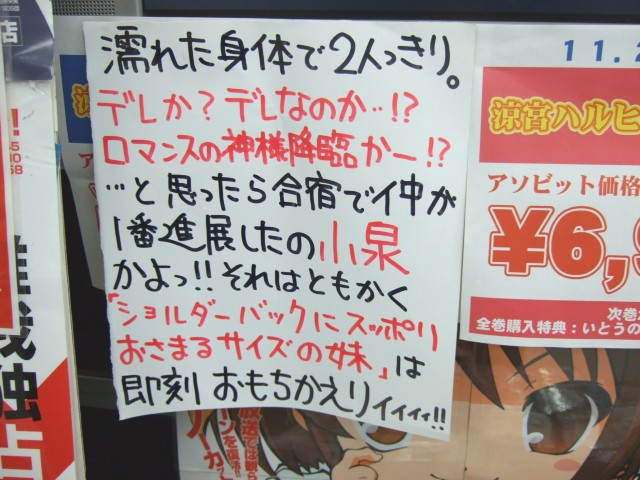 濡れた身体で2人っきり。
デレか?デレなのか…!?
ロマンスの神様降臨かー!?
…と思ったら合宿で仲が
1番進展したの小泉
かよっ!!それはともかく
「ショルダーバックにスッポリ
おさまるサイズの妹」は
即刻おもちかえりィィィィ!!
11.2
涼宮ハルヒ
アソビット価格
¥6,9
次巻
全巻購入特典:いとうの
店
独占
放送では観ら
ンを復活!!